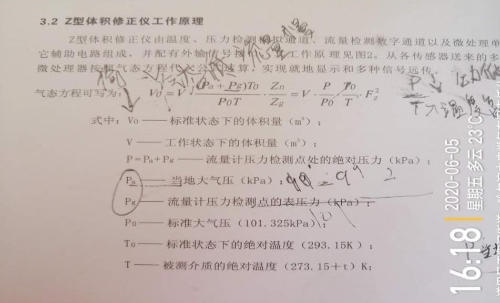 3.2 Z型体积修正仪工作原理
Z型体积修正仪由温度、压力检测模拟通道、流量检测数字通道以及微处理单
它辅助电路组成,并配有外输信号接口,工作原理见图2。从各传感器送来的多
微处理器按照气态方程作式分换算,实现就地显示和多种信号远传。
气态方程可写为: V₀ = V (Pa + Pg)T₀ / P₀T · Zn / Zg = V · P / P₀ · T₀ / T · F²g
式中: V₀ —— 标准状态下的体积量(m³);
V —— 工作状态下的体积量(m³);
P=Pa+Pg —— 流量计压力检测点处的绝对压力(kPa);
Pa —— 当地大气压(kPa);
Pg —— 流量计压力检测点的表压力(kPa);
P₀ —— 标准大气压(101.325kPa);
T₀ —— 标准状态下的绝对温度(293.15K);
T —— 被测介质的绝对温度(273.15+t)K;
2020-06-05
星期五 多云
16:18